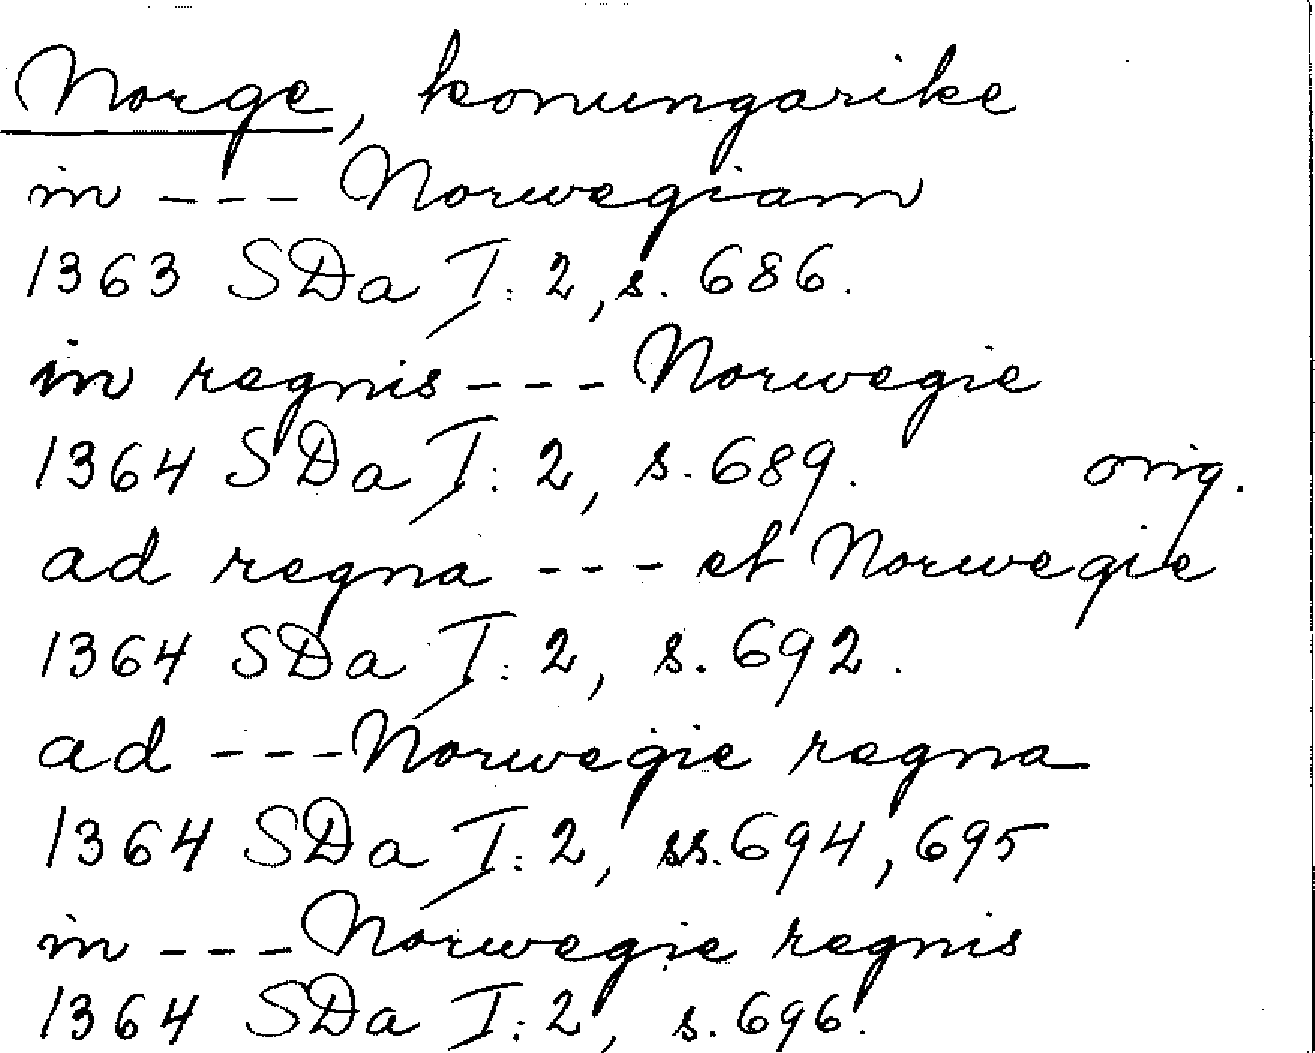 Norge, konungarike
in --- Norwegiam
1363 SDa I:2, s. 686.
in regnis --- Norwegie
1364 SDa I:2, s. 689. orig.
ad regna --- et Norwegie
1364 SDa I:2, s. 692.
ad --- Norwegie regna
1364 SDa I:2, ss. 694, 695
in --- Norwegie regnis
1364 SDa I:2, s. 696.